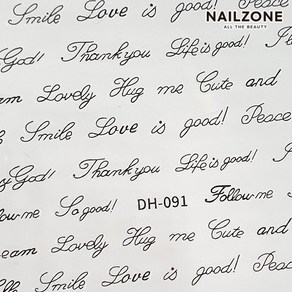 Smile Love is good! Peace
NAILZONE
ALL THE BEAUTY
God! Thank you Life is good!
eam Lovely Hug me Cute and
Smile Love is good! Peace
God! Thank you Life is good!
llow me So good! DH-091 Follow me
eam Lovely Hug me Cute and
Smile Love is good! Peace